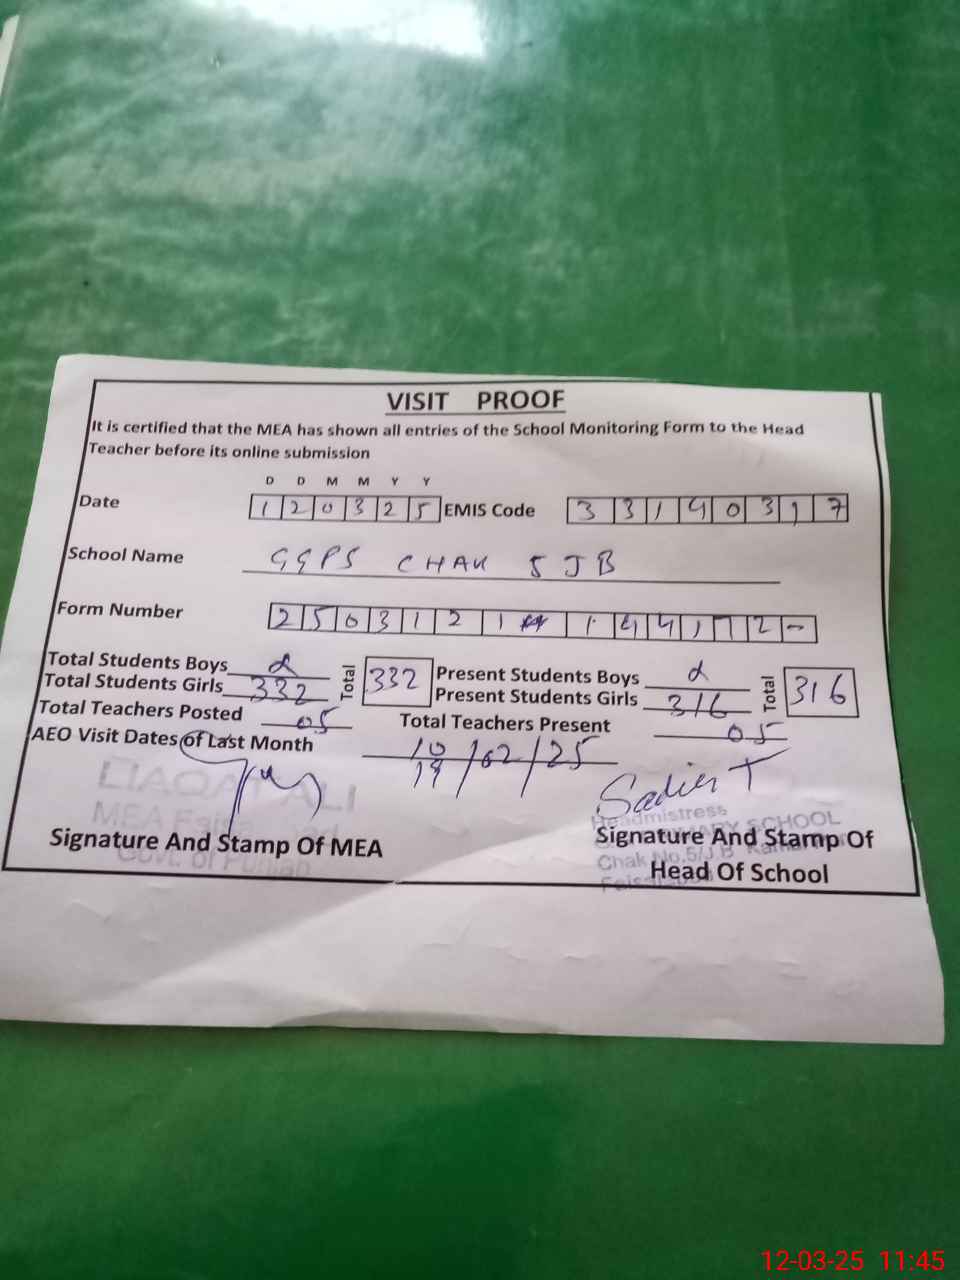 VISIT PROOF
It is certified that the MEA has shown all entries of the School Monitoring Form to the Head
Teacher before its online submission
D D M M Y Y
Date 1 2 0 3 2 5 EMIS Code 3 3 1 4 0 3 1 7
School Name GGPS CHAK 5 JB
Form Number 2 5 0 3 1 2 1 1 4 4 1 1 2 -
Total Students Boys Total 332 Present Students Boys Total 316
Total Students Girls 332 Present Students Girls 316
Total Teachers Posted 05 Total Teachers Present 05
AEO Visit Dates of Last Month 10/02/25
LIAQAT ALI
MEA
Govt. of Punjab
Signature And Stamp Of MEA
Headmistress
PRIMARY SCHOOL
Chak No.5/J.B
Signature And Stamp Of
Head Of School
12-03-25 11:45